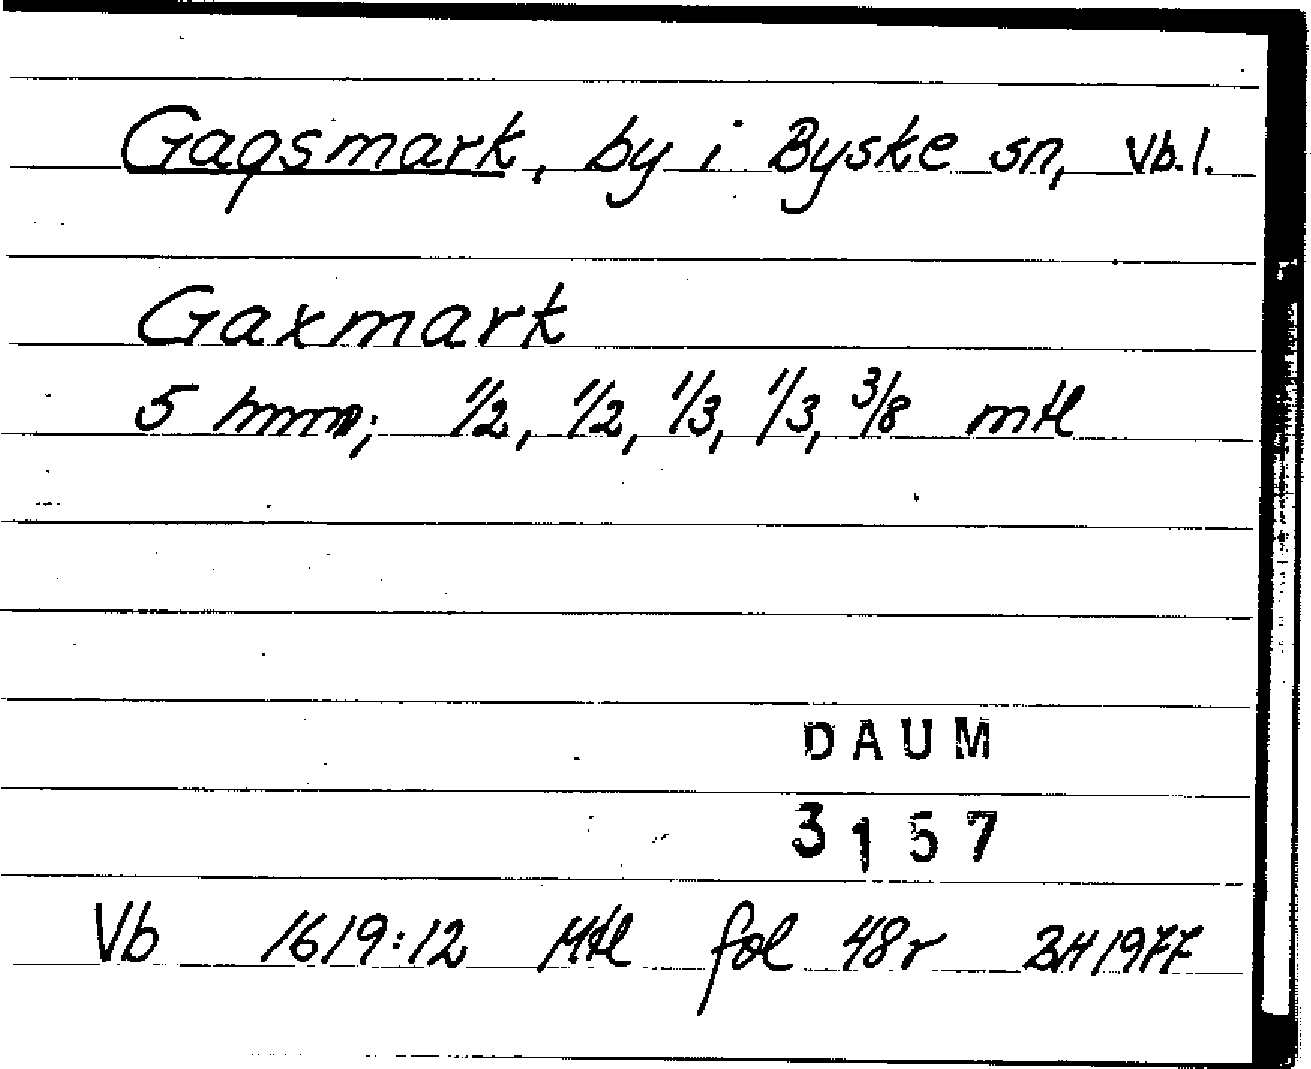 Gagsmark, by i Byske sn, Vb.l.
Gaxmark
5 hmn; 1/2, 1/2, 1/3, 1/3, 3/8 mtl
DAUM
3157
Vb 1619:12 Mtl fol 48r BH 1977